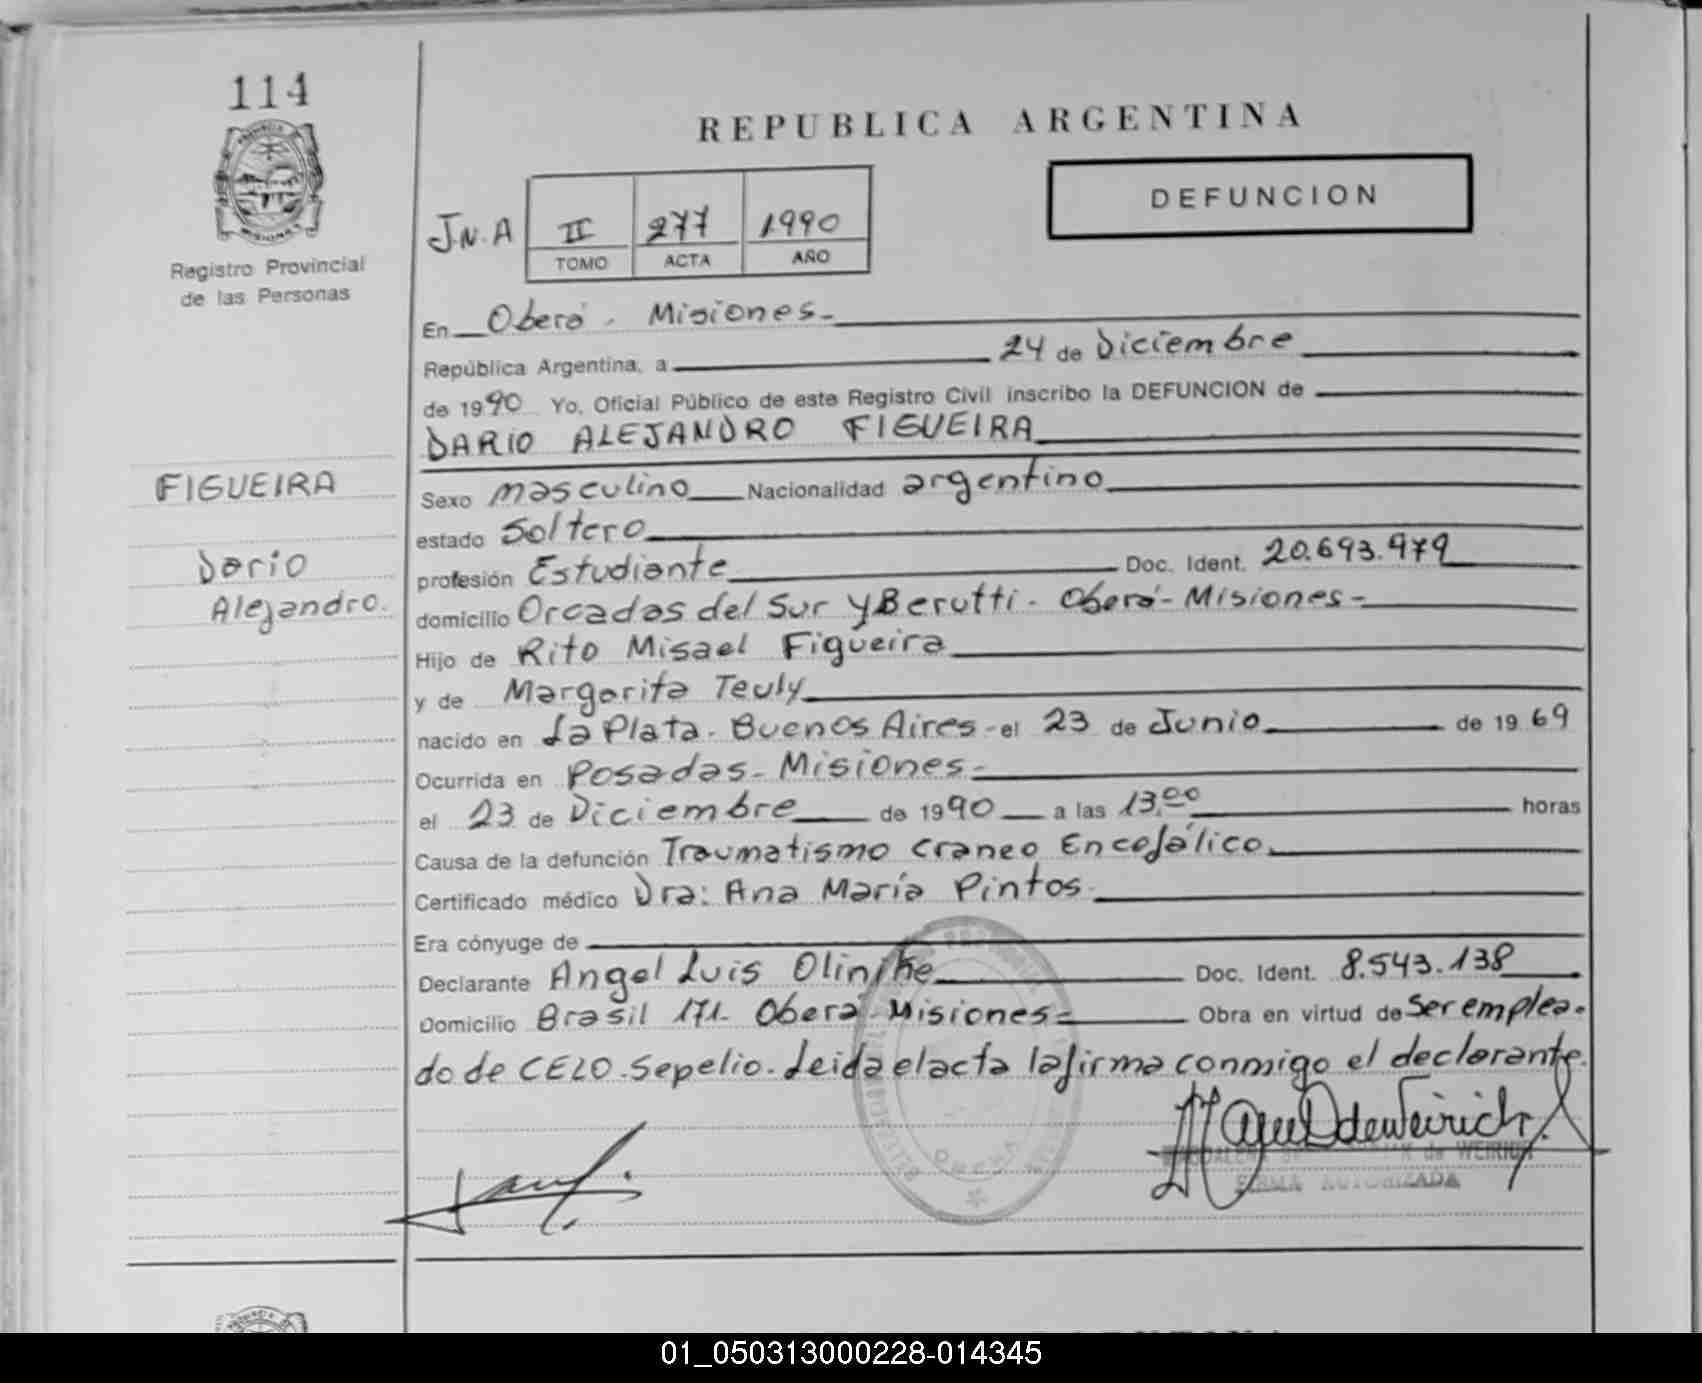 114
REPUBLICA ARGENTINA
DEFUNCION
J.N.A II 277 1990
TOMO ACTA AÑO
Registro Provincial
de las Personas
En Oberá - Misiones-
República Argentina, a 24 de Diciembre
de 1990 Yo, Oficial Público de este Registro Civil inscribo la DEFUNCION de
DARIO ALEJANDRO FIGUEIRA
FIGUEIRA
Dario
Alejandro.
Sexo masculino Nacionalidad argentino
estado Soltero
profesión Estudiante Doc. Ident. 20.693.979
domicilio Orcadas del Sur y Berutti - Oberá - Misiones -
Hijo de Rito Misael Figueira
y de Margarita Teuly
nacido en La Plata - Buenos Aires - el 23 de Junio de 1969
Ocurrida en Posadas - Misiones -
el 23 de Diciembre de 1990 a las 13,00 horas
Causa de la defunción Traumatismo craneo Encefálico.
Certificado médico Dra: Ana María Pintos.
Era cónyuge de
Declarante Angel Luis Doc. Ident. 8.543.138
Domicilio Brasil 171 - Oberá - Misiones - Obra en virtud de Ser emplea-
do de CELO. Sepelio. Leida el acta la firma conmigo el declarante.
de WEIRICH
FIRMA AUTORIZADA
01_050313000228-014345